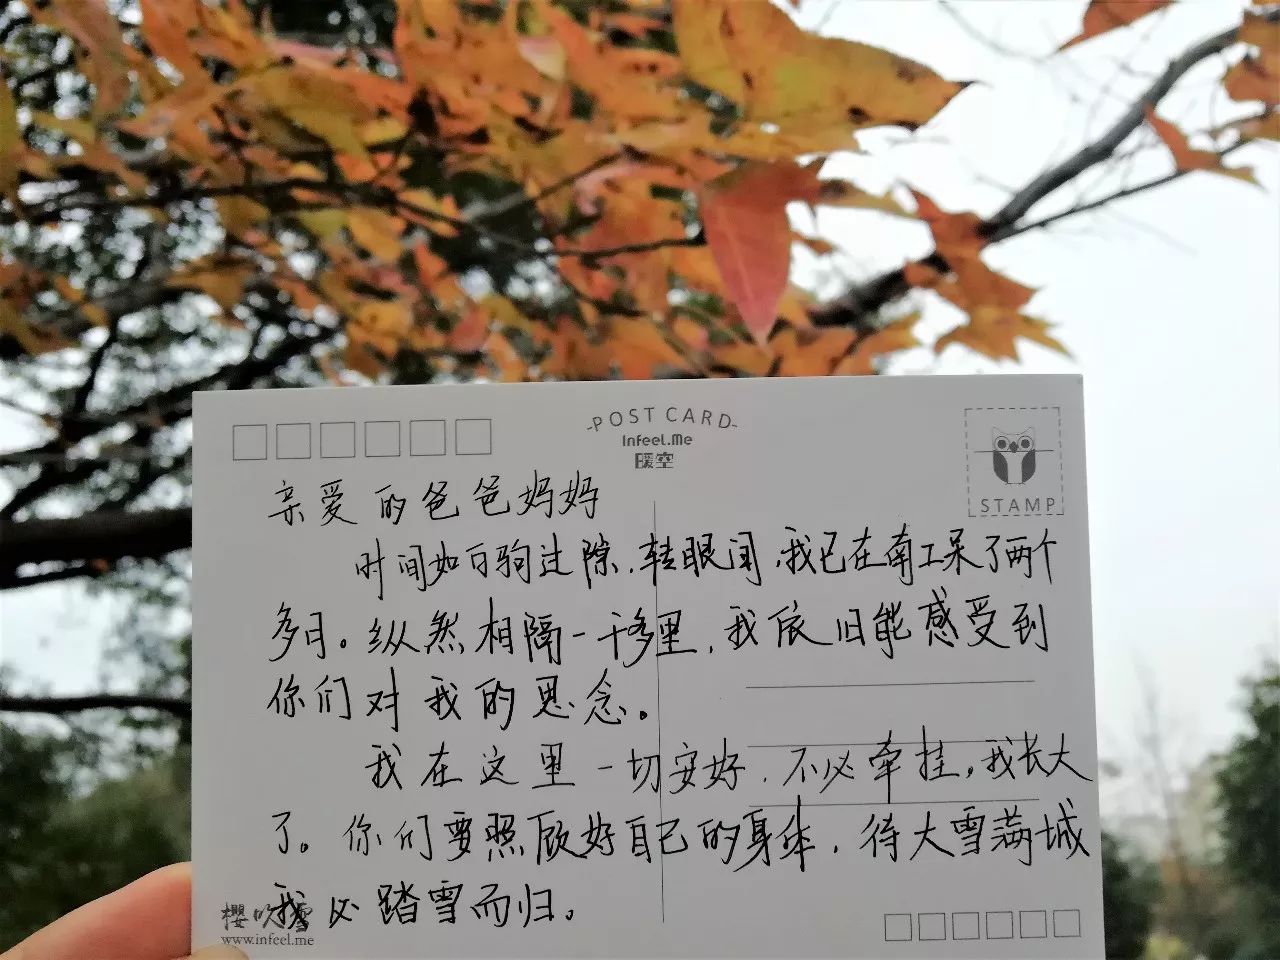 POST CARD
Infeel.Me
暖空
STAMP
亲爱的爸爸妈妈
时间如白驹过隙,转眼间,我已在南工呆了两个
多月。纵然相隔一千多里,我依旧能感受到
你们对我的思念。
我在这里一切安好,不必牵挂。我长大
了。你们要照顾好自己的身体,待大雪满城
我必踏雪而归。
樱吹雪
www.infeel.me